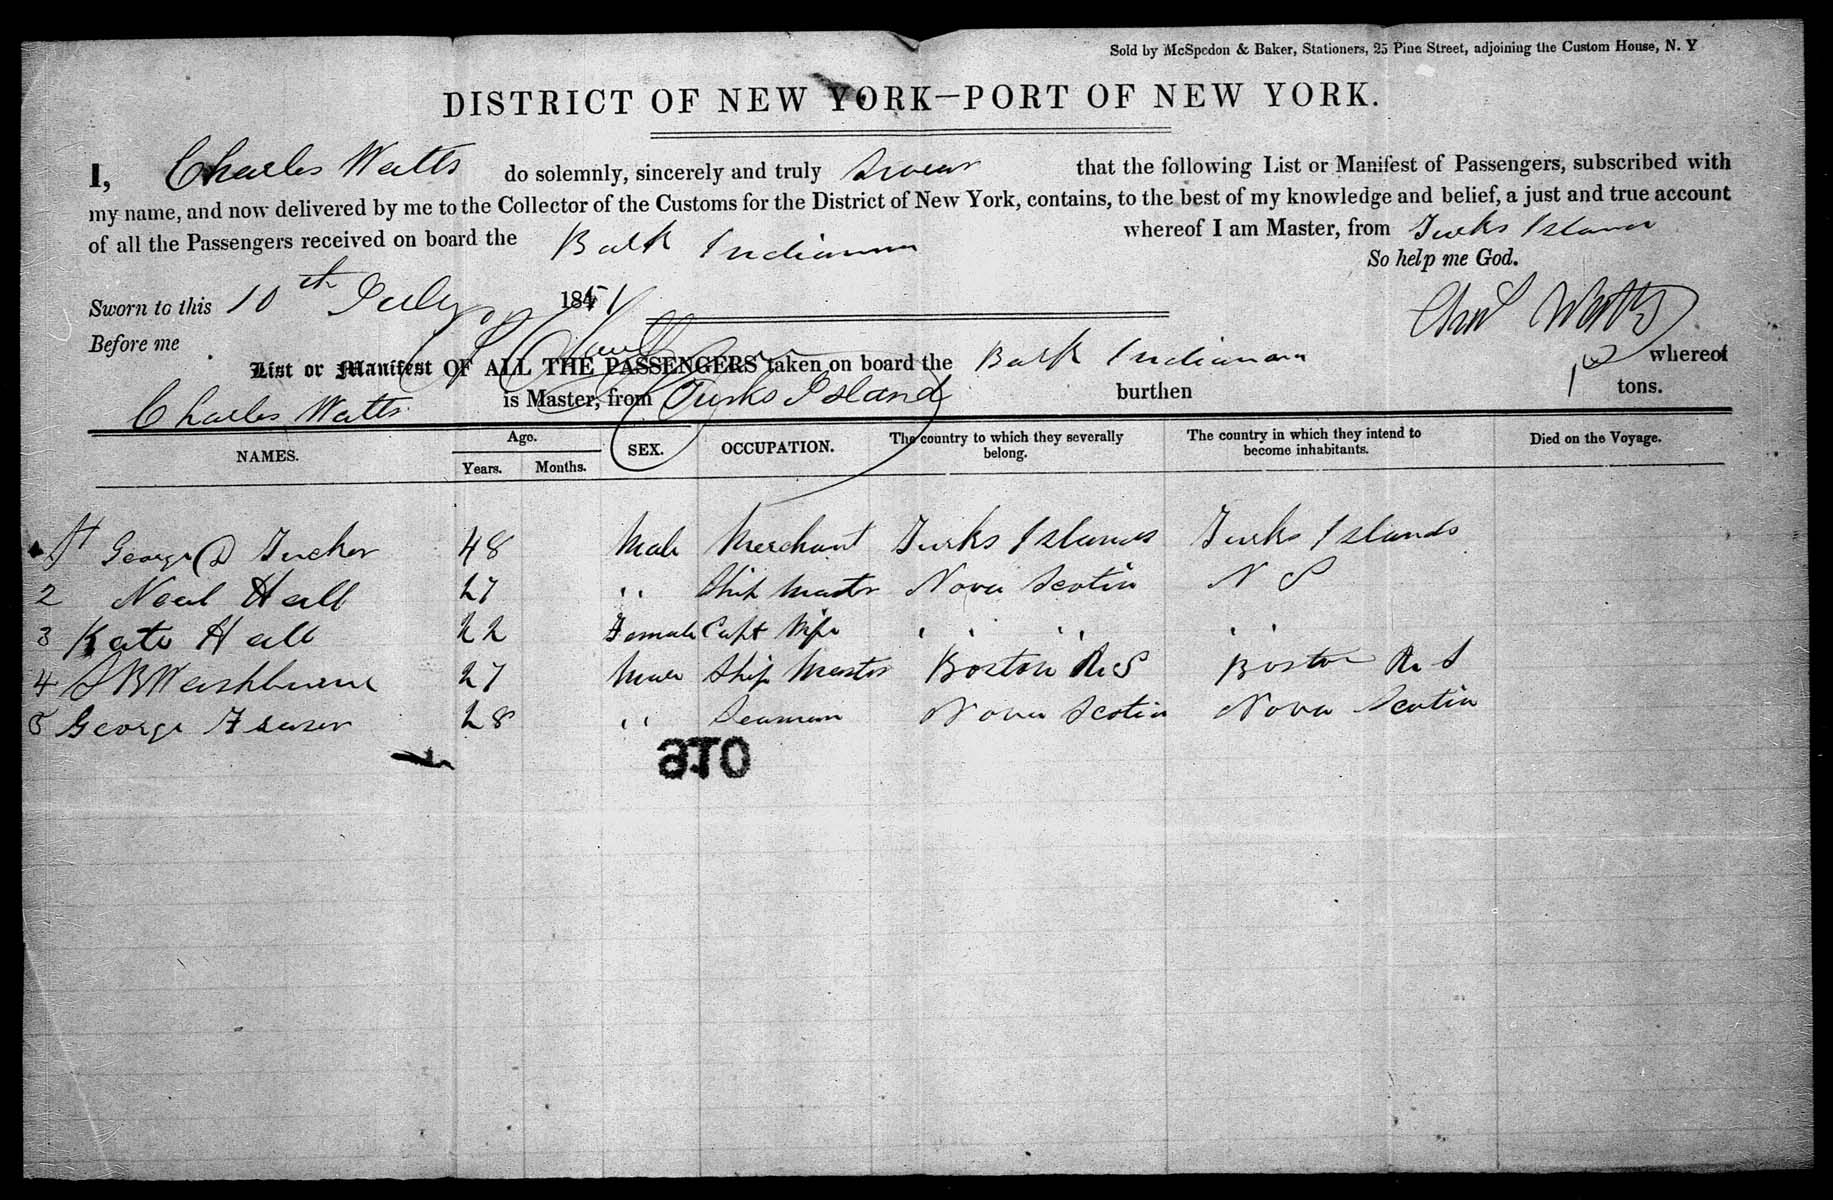 Sold by McSpedon & Baker, Stationers, 25 Pine Street, adjoining the Custom House, N. Y
DISTRICT OF NEW YORK—PORT OF NEW YORK.
I, Charles Watts do solemnly, sincerely and truly swear that the following List or Manifest of Passengers, subscribed with
my name, and now delivered by me to the Collector of the Customs for the District of New York, contains, to the best of my knowledge and belief, a just and true account
of all the Passengers received on board the Bark Indiana whereof I am Master, from Turks Island
So help me God.
Sworn to this 10th July 1851 Chas Watts
Before me
List or Manifest OF ALL THE PASSENGERS taken on board the Bark Indiana whereof
Charles Watts is Master, from Turks Island burthen tons.
NAMES. Age. Years. Months. SEX. OCCUPATION. The country to which they severally belong. The country in which they intend to become inhabitants. Died on the Voyage.
1 George D Tucker 48 Male Merchant Turks Islands Turks Islands
2 Neal Hall 27 " Ship Master Nova Scotia N S
3 Kate Hall 22 Female Capt Wife " " " "
4 S B Washburne 27 Male Ship Master Boston Boston
5 George Fraser 28 " Seaman Nova Scotia Nova Scotia
910